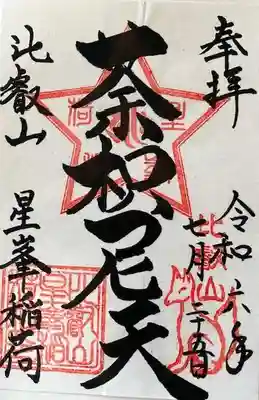 奉拝
令和六年
七月二十五日
荼枳尼天
比叡山
星峯稲荷
比叡山